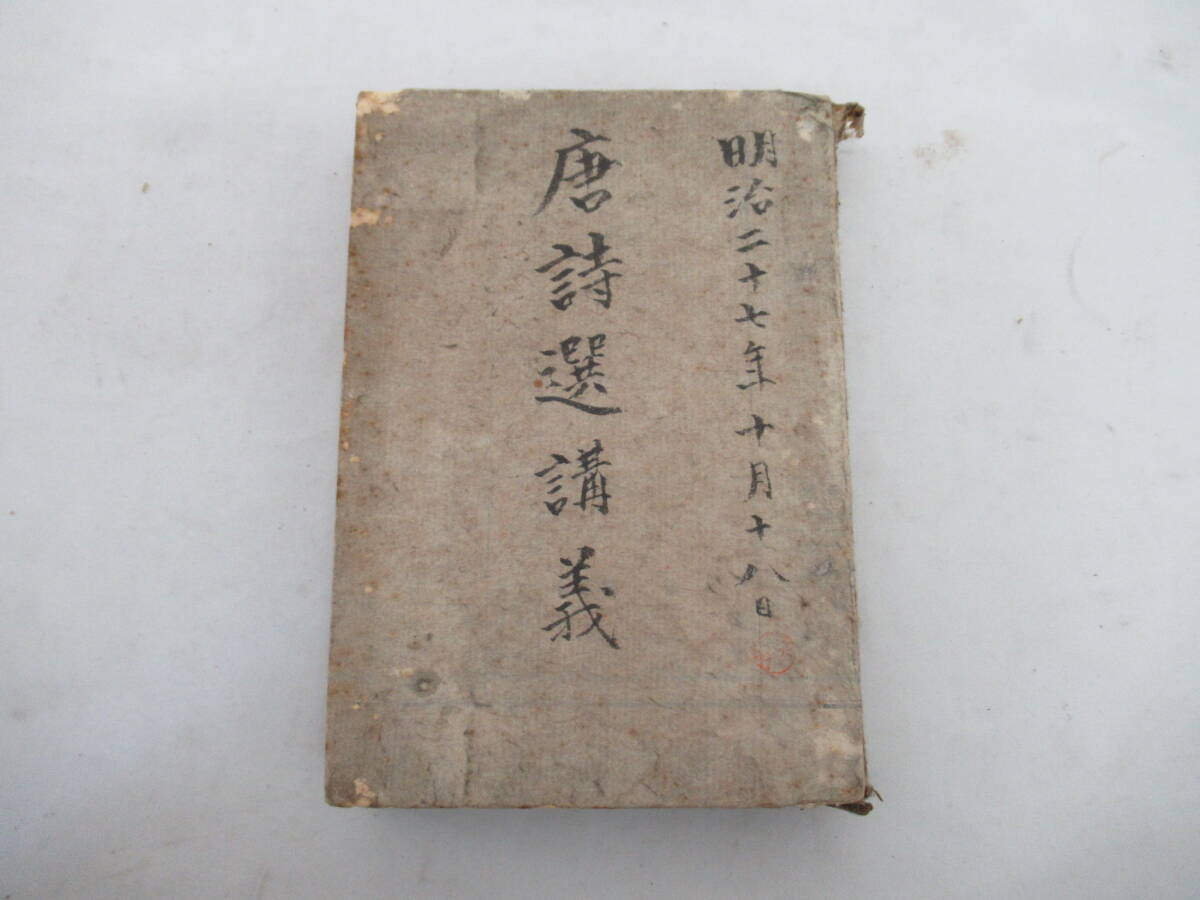 明治二十七年十月十八日
唐詩選講義